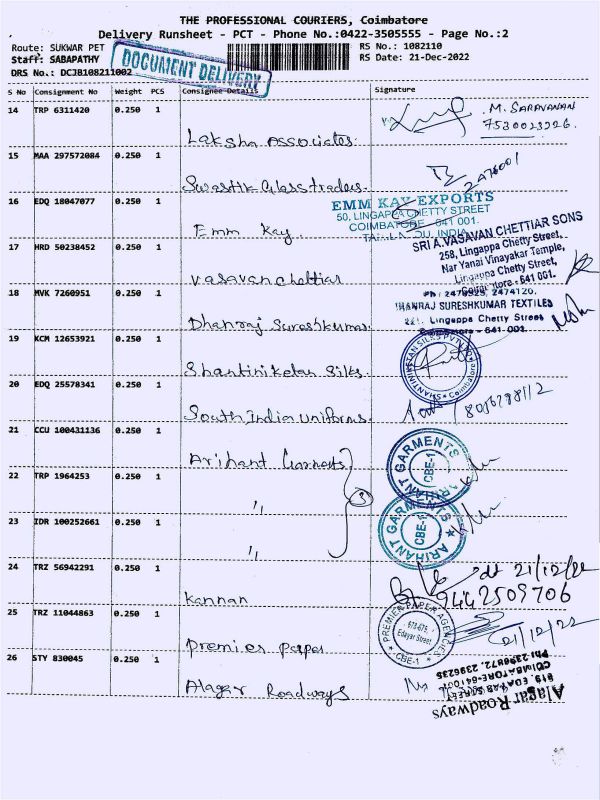 THE PROFESSIONAL COURIERS, Coimbatore
Delivery Runsheet - PCT - Phone No.:0422-3505555 - Page No.:2
Route: SUKWAR PET
RS No.: 1082110
Staff: SABAPATHY
RS Date: 21-Dec-2022
DRS No.: DCJB108211002
DOCUMENT DELIVERY
S No Consignment No Weight PCS Consignee Details Signature
14 TRP 6311420 0.250 1
M. SARAVANAN
7530023226.
Laksha Associates.
15 MAA 297572084 0.250 1
2476001
Swastik Glass traders.
16 EDQ 18047077 0.250 1
EMM KAY EXPORTS
50, LINGAPPA CHETTY STREET
COIMBATORE - 641 001.
Emm Kay
17 HRD 50238452 0.250 1
SRI A.VASAVAN CHETTIAR SONS
258, Lingappa Chetty Street,
Nar Yanai Vinayakar Temple,
Lingappa Chetty Street,
Coimbatore - 641 001.
vasavan chettiar
18 MVK 7260951 0.250 1
2474120,
DHANRAJ SURESHKUMAR TEXTILES
221, Lingappa Chetty Street
Coimbatore - 641 001.
Dhanraj Sureshkumar.
19 KCM 12653921 0.250 1
SHANTINIKETAN SILKS PVT LTD
Coimbatore
Shantiniketan Silks.
20 EDQ 25578341 0.250 1
South India Uniforms.
21 CCU 100431136 0.250 1
Arihant Garments
ARIHANT GARMENTS
CBE-1
22 TRP 1964253 0.250 1
"
3
23 IDR 100252661 0.250 1
ARIHANT GARMENTS
CBE-1
"
24 TRZ 56942291 0.250 1
dt 21/12/22
9442509706
Kannan
25 TRZ 11044863 0.250 1
PREMIER PAPER AGENCIES
Edayar Street
CBE-1
21/12/22
Premier paper
26 STY 830045 0.250 1
Alagar Roadways
819, EDAYAR STREET
COIMBATORE-641001
Ph:2396872, 2396235
Alagar Roadways